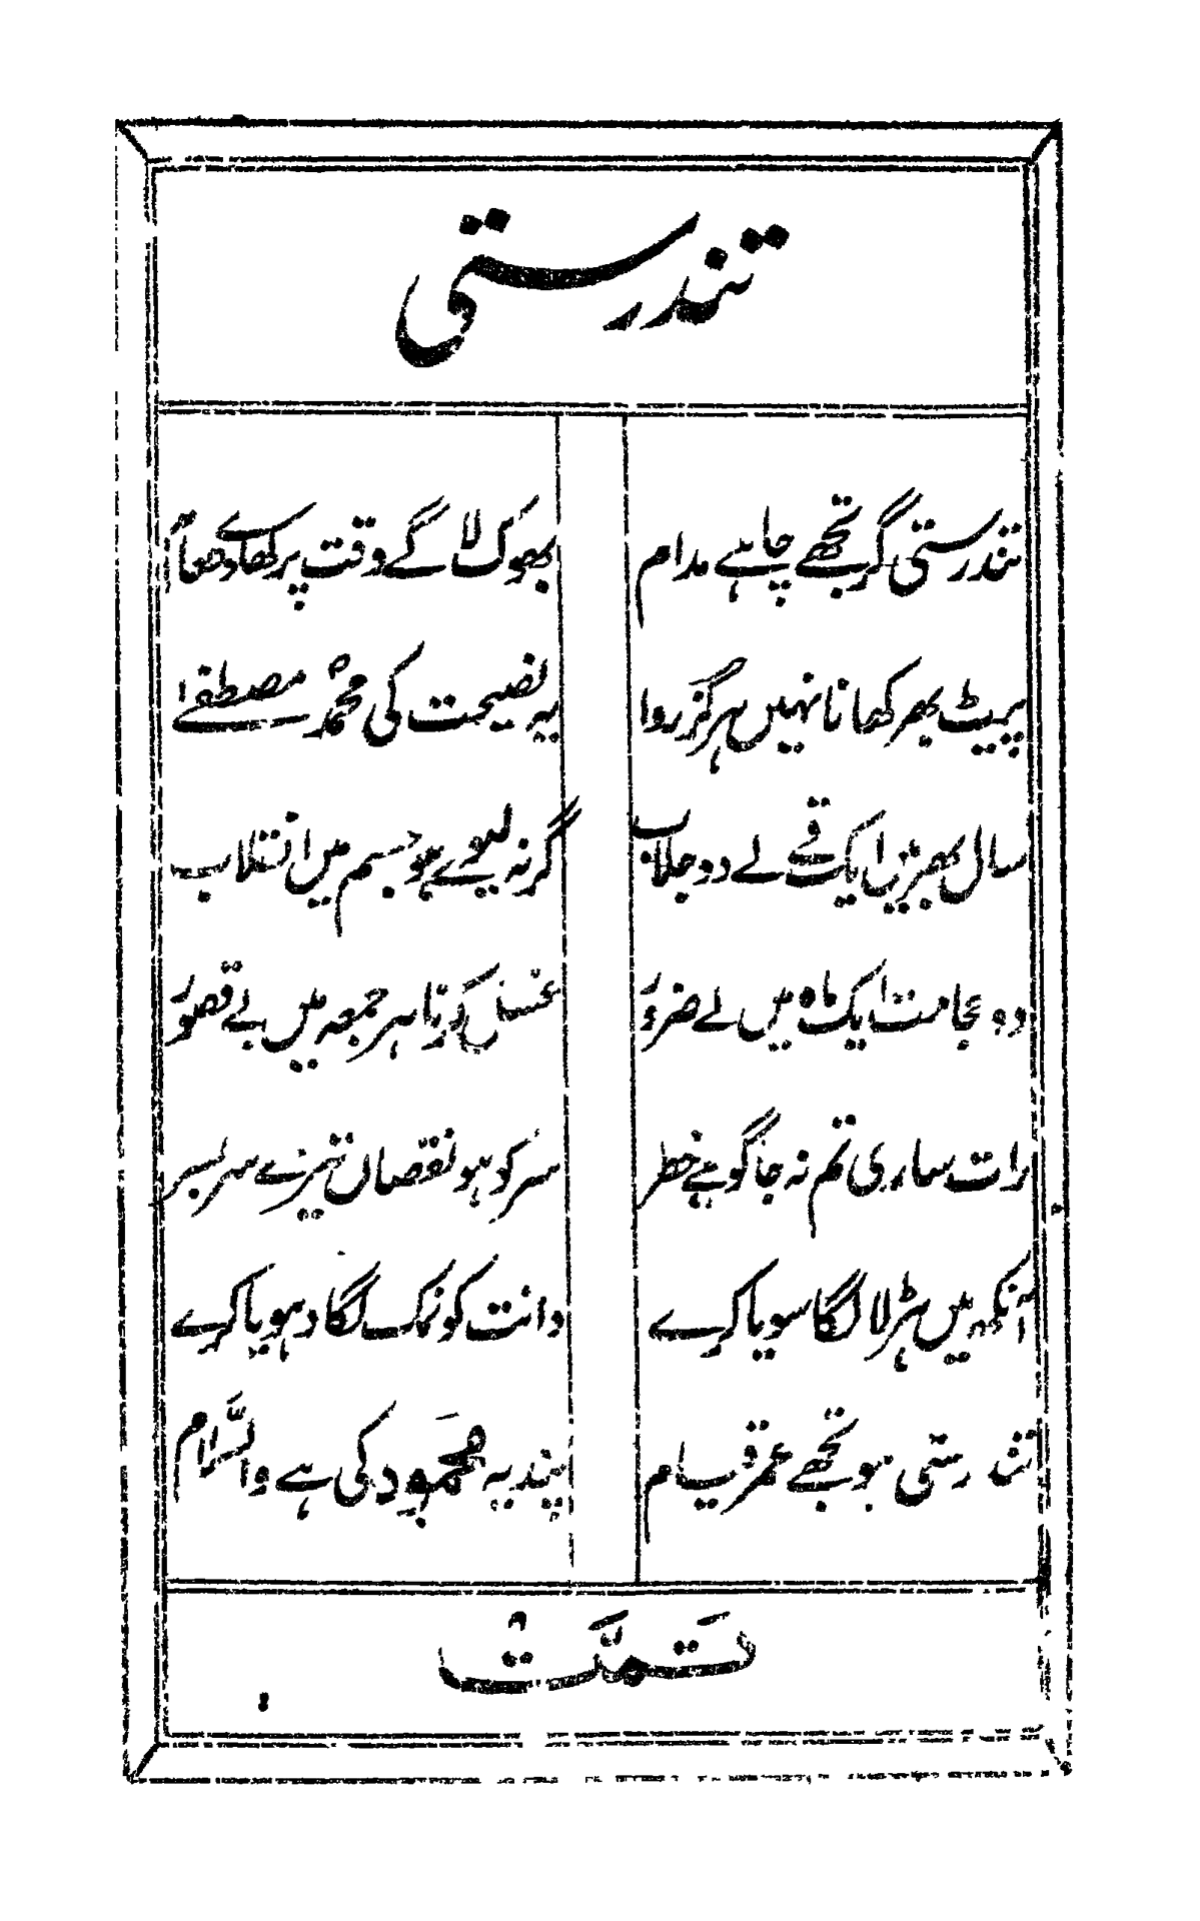 تندرستی
تندرستی گر تجھے چاہے مدام
بھوک لاگے وقت پر کھاوے طعام
پیٹ بھر کھانا نہیں ہرگز روا
یہ نصیحت کی محمدؐ مصطفےٰ
سال بھر میں ایک قے لے دو جلاب
گر نہ لیوے ہو جسم میں انقلاب
دو حجامت ایک ماہ میں لے ضرور
غسل کرنا ہر جمعہ میں بے قصور
رات ساری تم نہ جاگو ہے خطر
سر کو ہو نقصان تیرے سر بسر
آنکھ میں ہڑ لا لگا سویا کرے
دانت کو نمک لگا دہویا کرے
تندرستی ہو تجھے عمر قیام
پند یہ محمود کی ہے والسّلام
تَمَّتْ